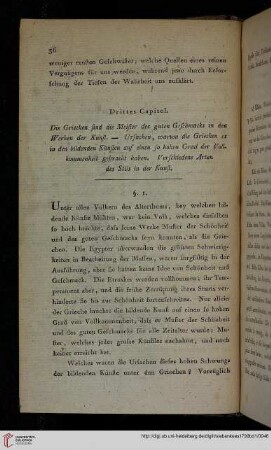 36
weniger ernsten Geschwister, welche Quellen eines reinen
Vergnügens für uns werden, während jene durch Erfor-
schung der Tiefen der Wahrheit uns aufklärt.
Drittes Capitel.
Die Griechen sind die Meister des guten Geschmacks in den
Werken der Kunst. — Ursachen, warum die Griechen es
in den bildenden Künsten auf einen so hohen Grad der Voll-
kommenheit gebracht haben. Verschiedene Arten
des Stils in der Kunst.
§. 1.
Unter allen Völkern des Alterthums, bey welchen bil-
dende Künste blühten, war kein Volk, welches dieselben
so hoch brachte, daß seine Werke Muster der Schönheit
und des guten Geschmacks seyn konnten, als die Grie-
chen. Die Egypter überwanden die größten Schwierig-
keiten in Bearbeitung der Massen, waren sorgfältig in der
Ausführung, aber sie hatten keine Idee von Schönheit und
Geschmack. Die Etrusker wurden vollkommener; ihr Tem-
perament aber, und die frühe Zerstörung ihres Staats ver-
hinderte sie bis zur Schönheit fortzuschreiten. Nur allein
der Grieche brachte die bildende Kunst auf einen so hohen
Grad von Vollkommenheit, daß er Muster der Schönheit
und des guten Geschmacks für alle Zeitalter wurde; Mu-
ster, welchen jeder große Künstler nachahmt, und noch
keiner erreicht hat.
Welches waren die Ursachen dieses hohen Schwungs
der bildenden Künste unter den Griechen? Vorzüglich